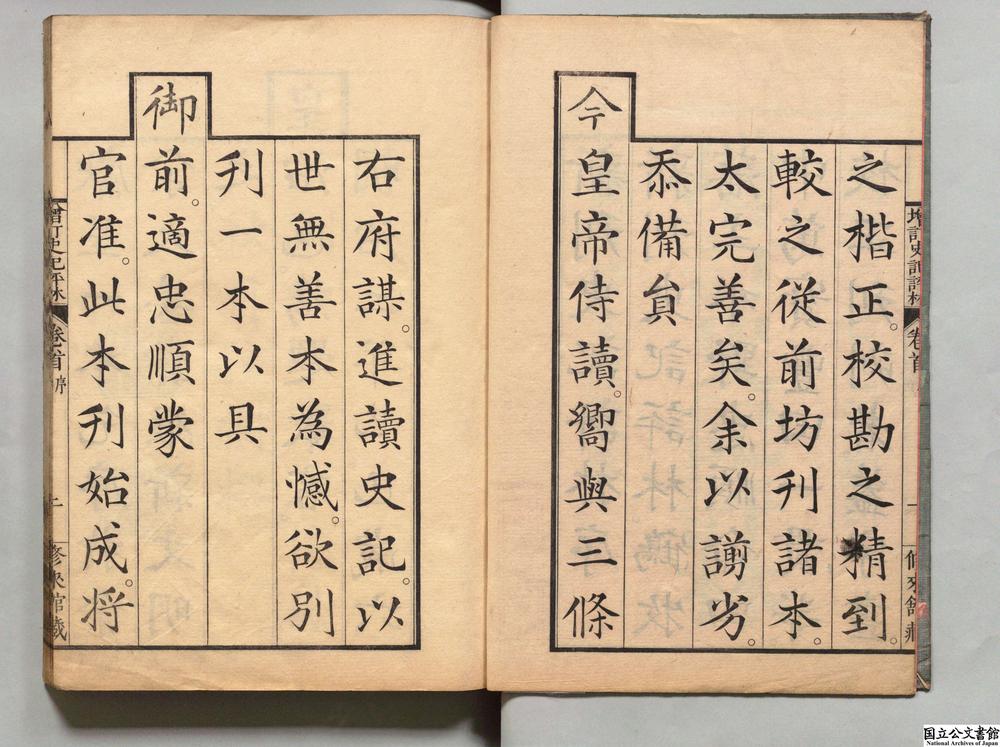 之楷正。校勘之精到。
較之從前坊刊諸本。
太完善矣。余以謭劣。
忝備貟
今皇帝侍讀。嚮與三條
右府謀。進讀史記。以
世無善本為憾。欲別
刊一本以具
御前。適忠順蒙
官准。此本刊始成。將
增訂史記評林
卷首
一
修來館藏
增訂史記評林
卷首
序
修來館藏
国立公文書館
National Archives of Japan